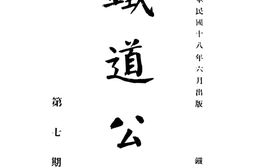 民國十八年六月出版
鐵
鐵道公
第七期